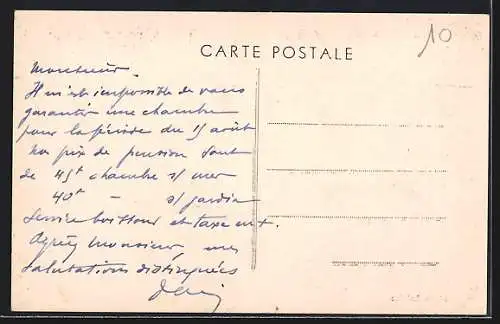 10
CARTE POSTALE
Monsieur.
Il m'est impossible de vous
garantir une chambre
pour la période du 15 août
nos prix de pension sont
de 45f chambre s/ mer
40f - s/ jardin
Service boisson et taxe en +.
Agréez Monsieur, mes
salutations distinguées